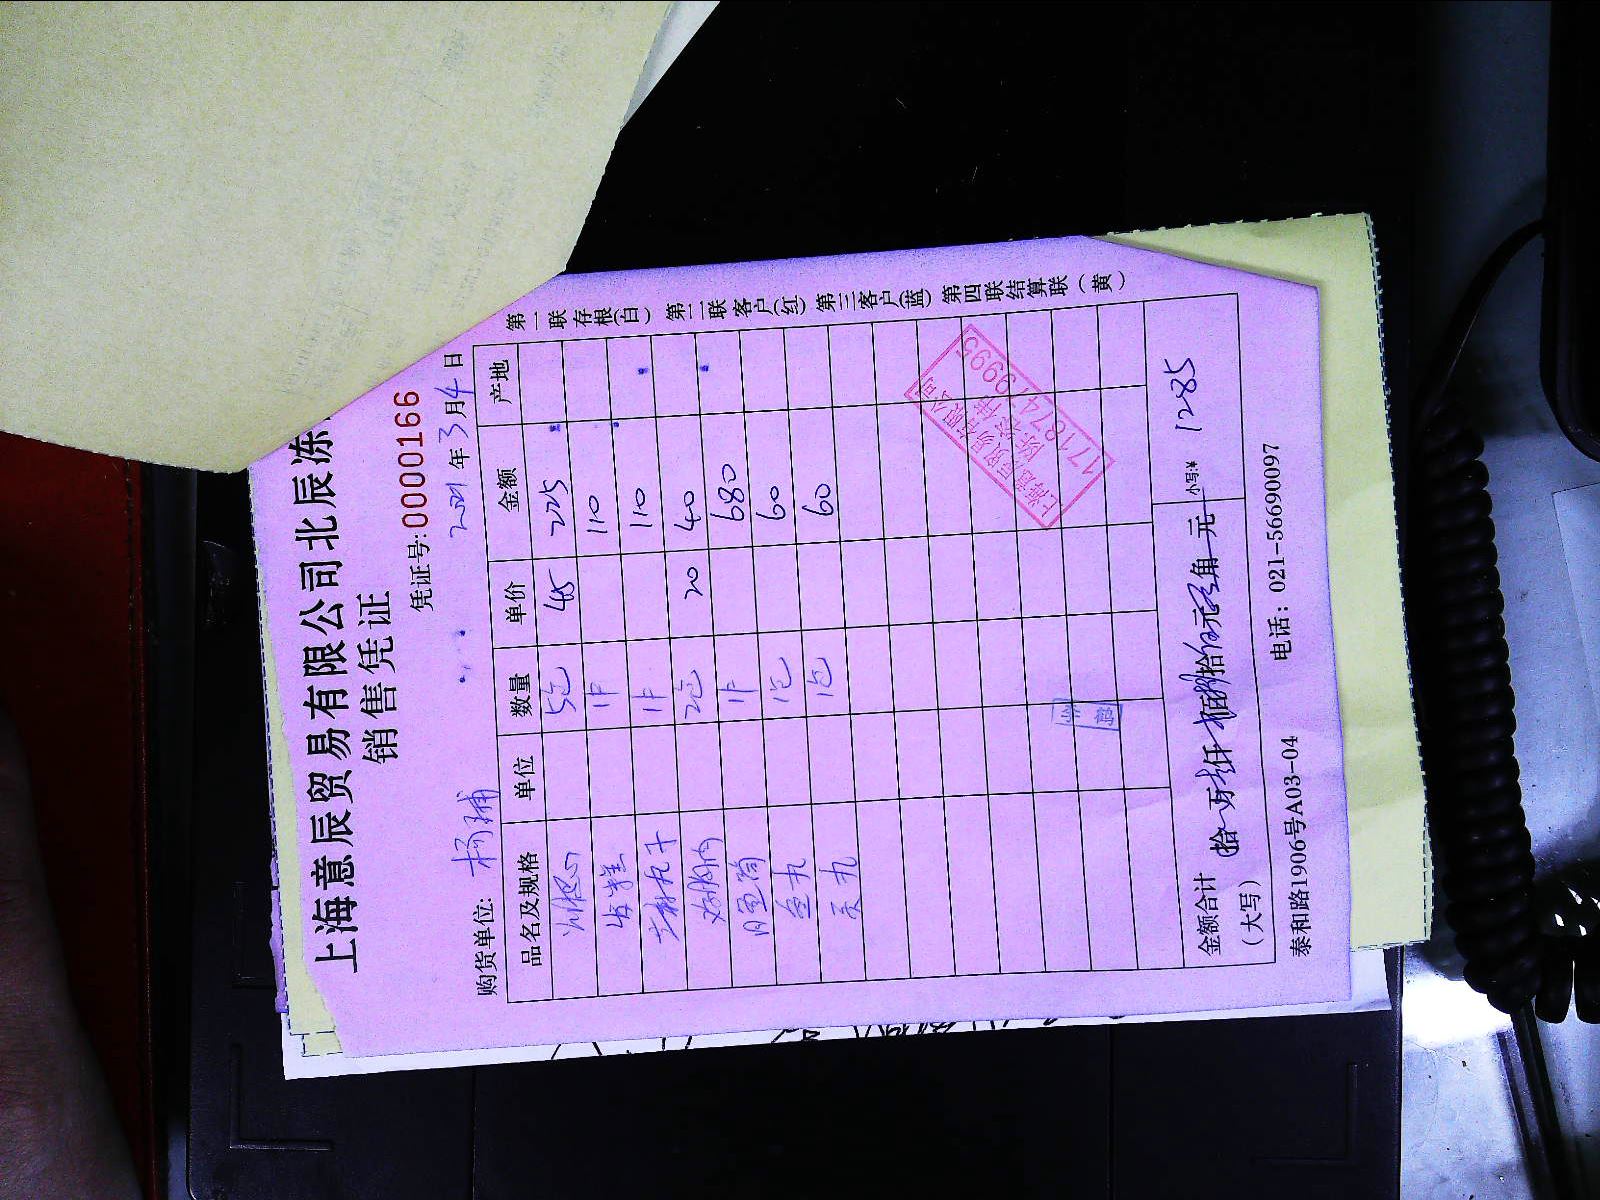 上海意辰贸易有限公司北辰冻
销售凭证
凭证号:0000166
购货单位: 杨浦 2021 年 3 月 4 日
品名及规格 单位 数量 单价 金额 产地
5包 45 225
发糕 1件 110
1件 110
2包 20 40
1件 680
鱼丸 1包 60
1包 60
金额合计 拾 万 仟 佰 拾 元 角 元 小写:¥ 1285
(大写)
泰和路1906号A03-04 电话: 021-56690097
第一联存根(白) 第二联客户(红) 第三客户(蓝) 第四联结算联(黄)
上海意辰贸易有限公司
17187479995